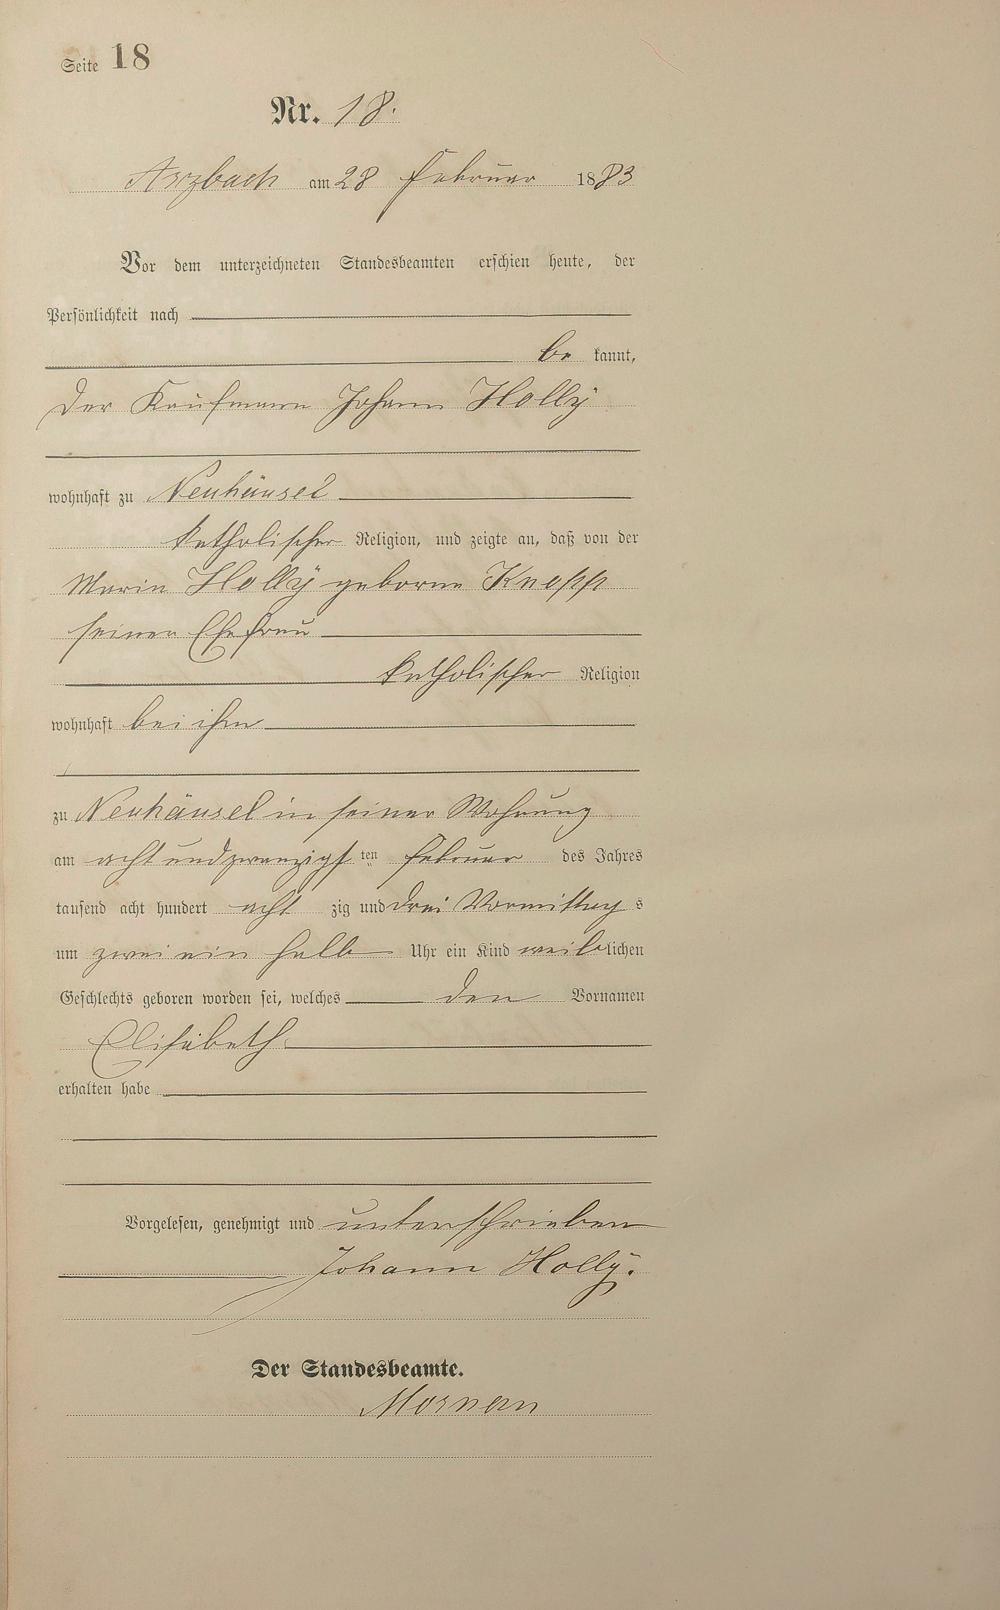 Seite 18
Nr. 18.
Arzbach am 28 Februar 1883
Vor dem unterzeichneten Standesbeamten erschien heute, der
Persönlichkeit nach
be kannt,
der Kaufmann Johann Holly
wohnhaft zu Neuhäusel
katholischer Religion, und zeigte an, daß von der
Maria Holly geborne Knopp
seiner Ehefrau
katholischer Religion
wohnhaft bei ihm
zu Neuhäusel in seiner Wohnung
am acht und zwanzigsten Februar des Jahres
tausend acht hundert acht zig und drei Vormittags
um zwei ein halb Uhr ein Kind weiblichen
Geschlechts geboren worden sei, welches den Vornamen
Elisabeth
erhalten habe
Vorgelesen, genehmigt und unterschrieben
Johann Holly.
Der Standesbeamte.